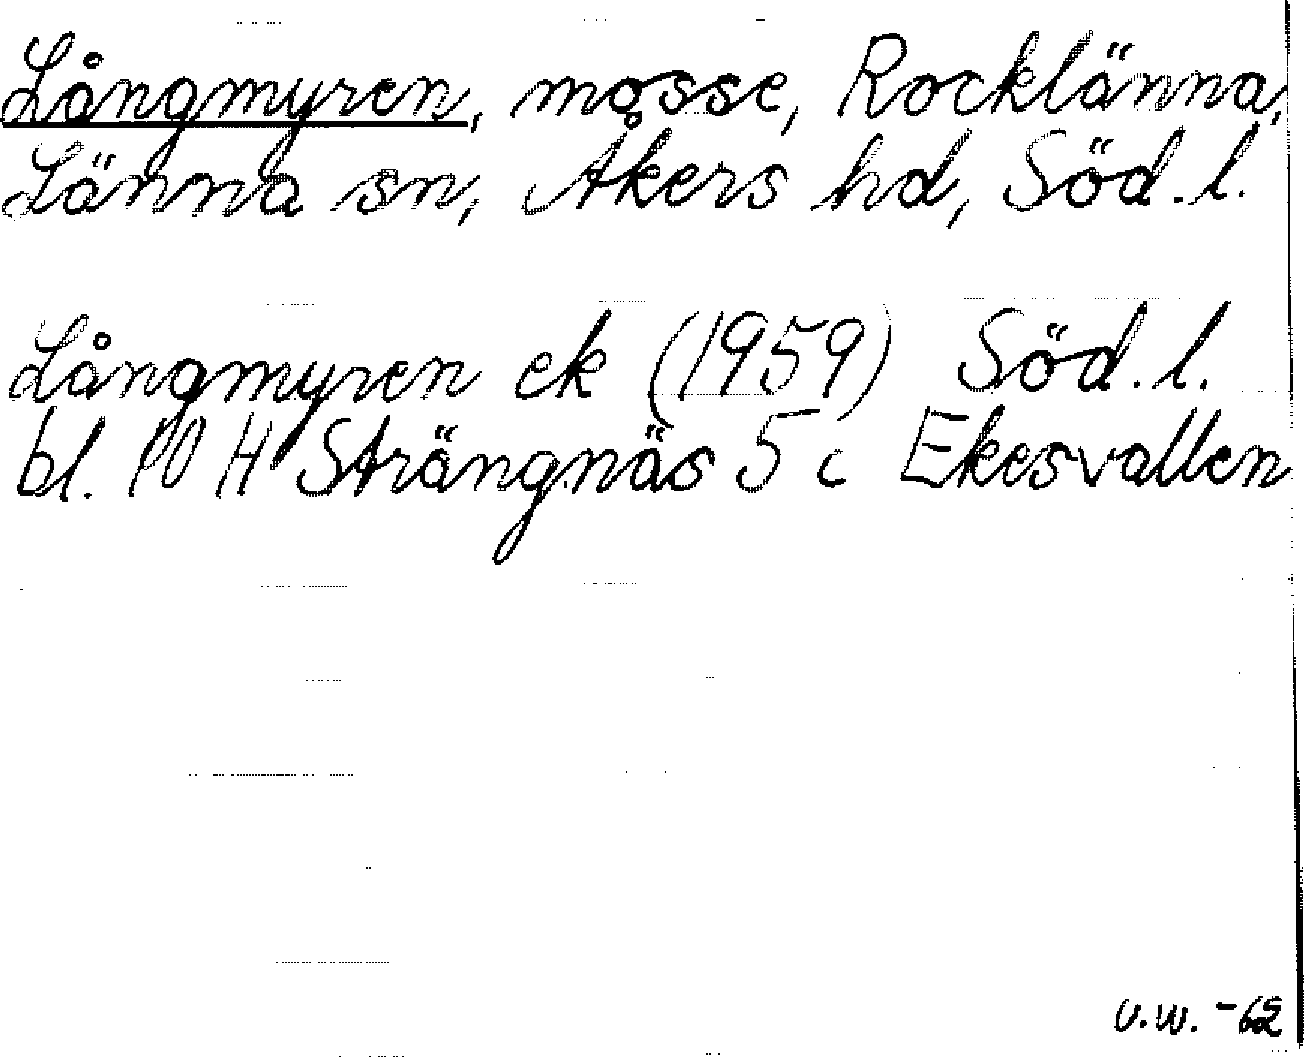 Långmyren, mosse, Rocklänna,
Länna sn, Åkers hd, Söd.l.
Långmyren ek (1959) Söd.l.
bl. 10 H Strängnäs 5 c Ekesvallen
U.W. -62